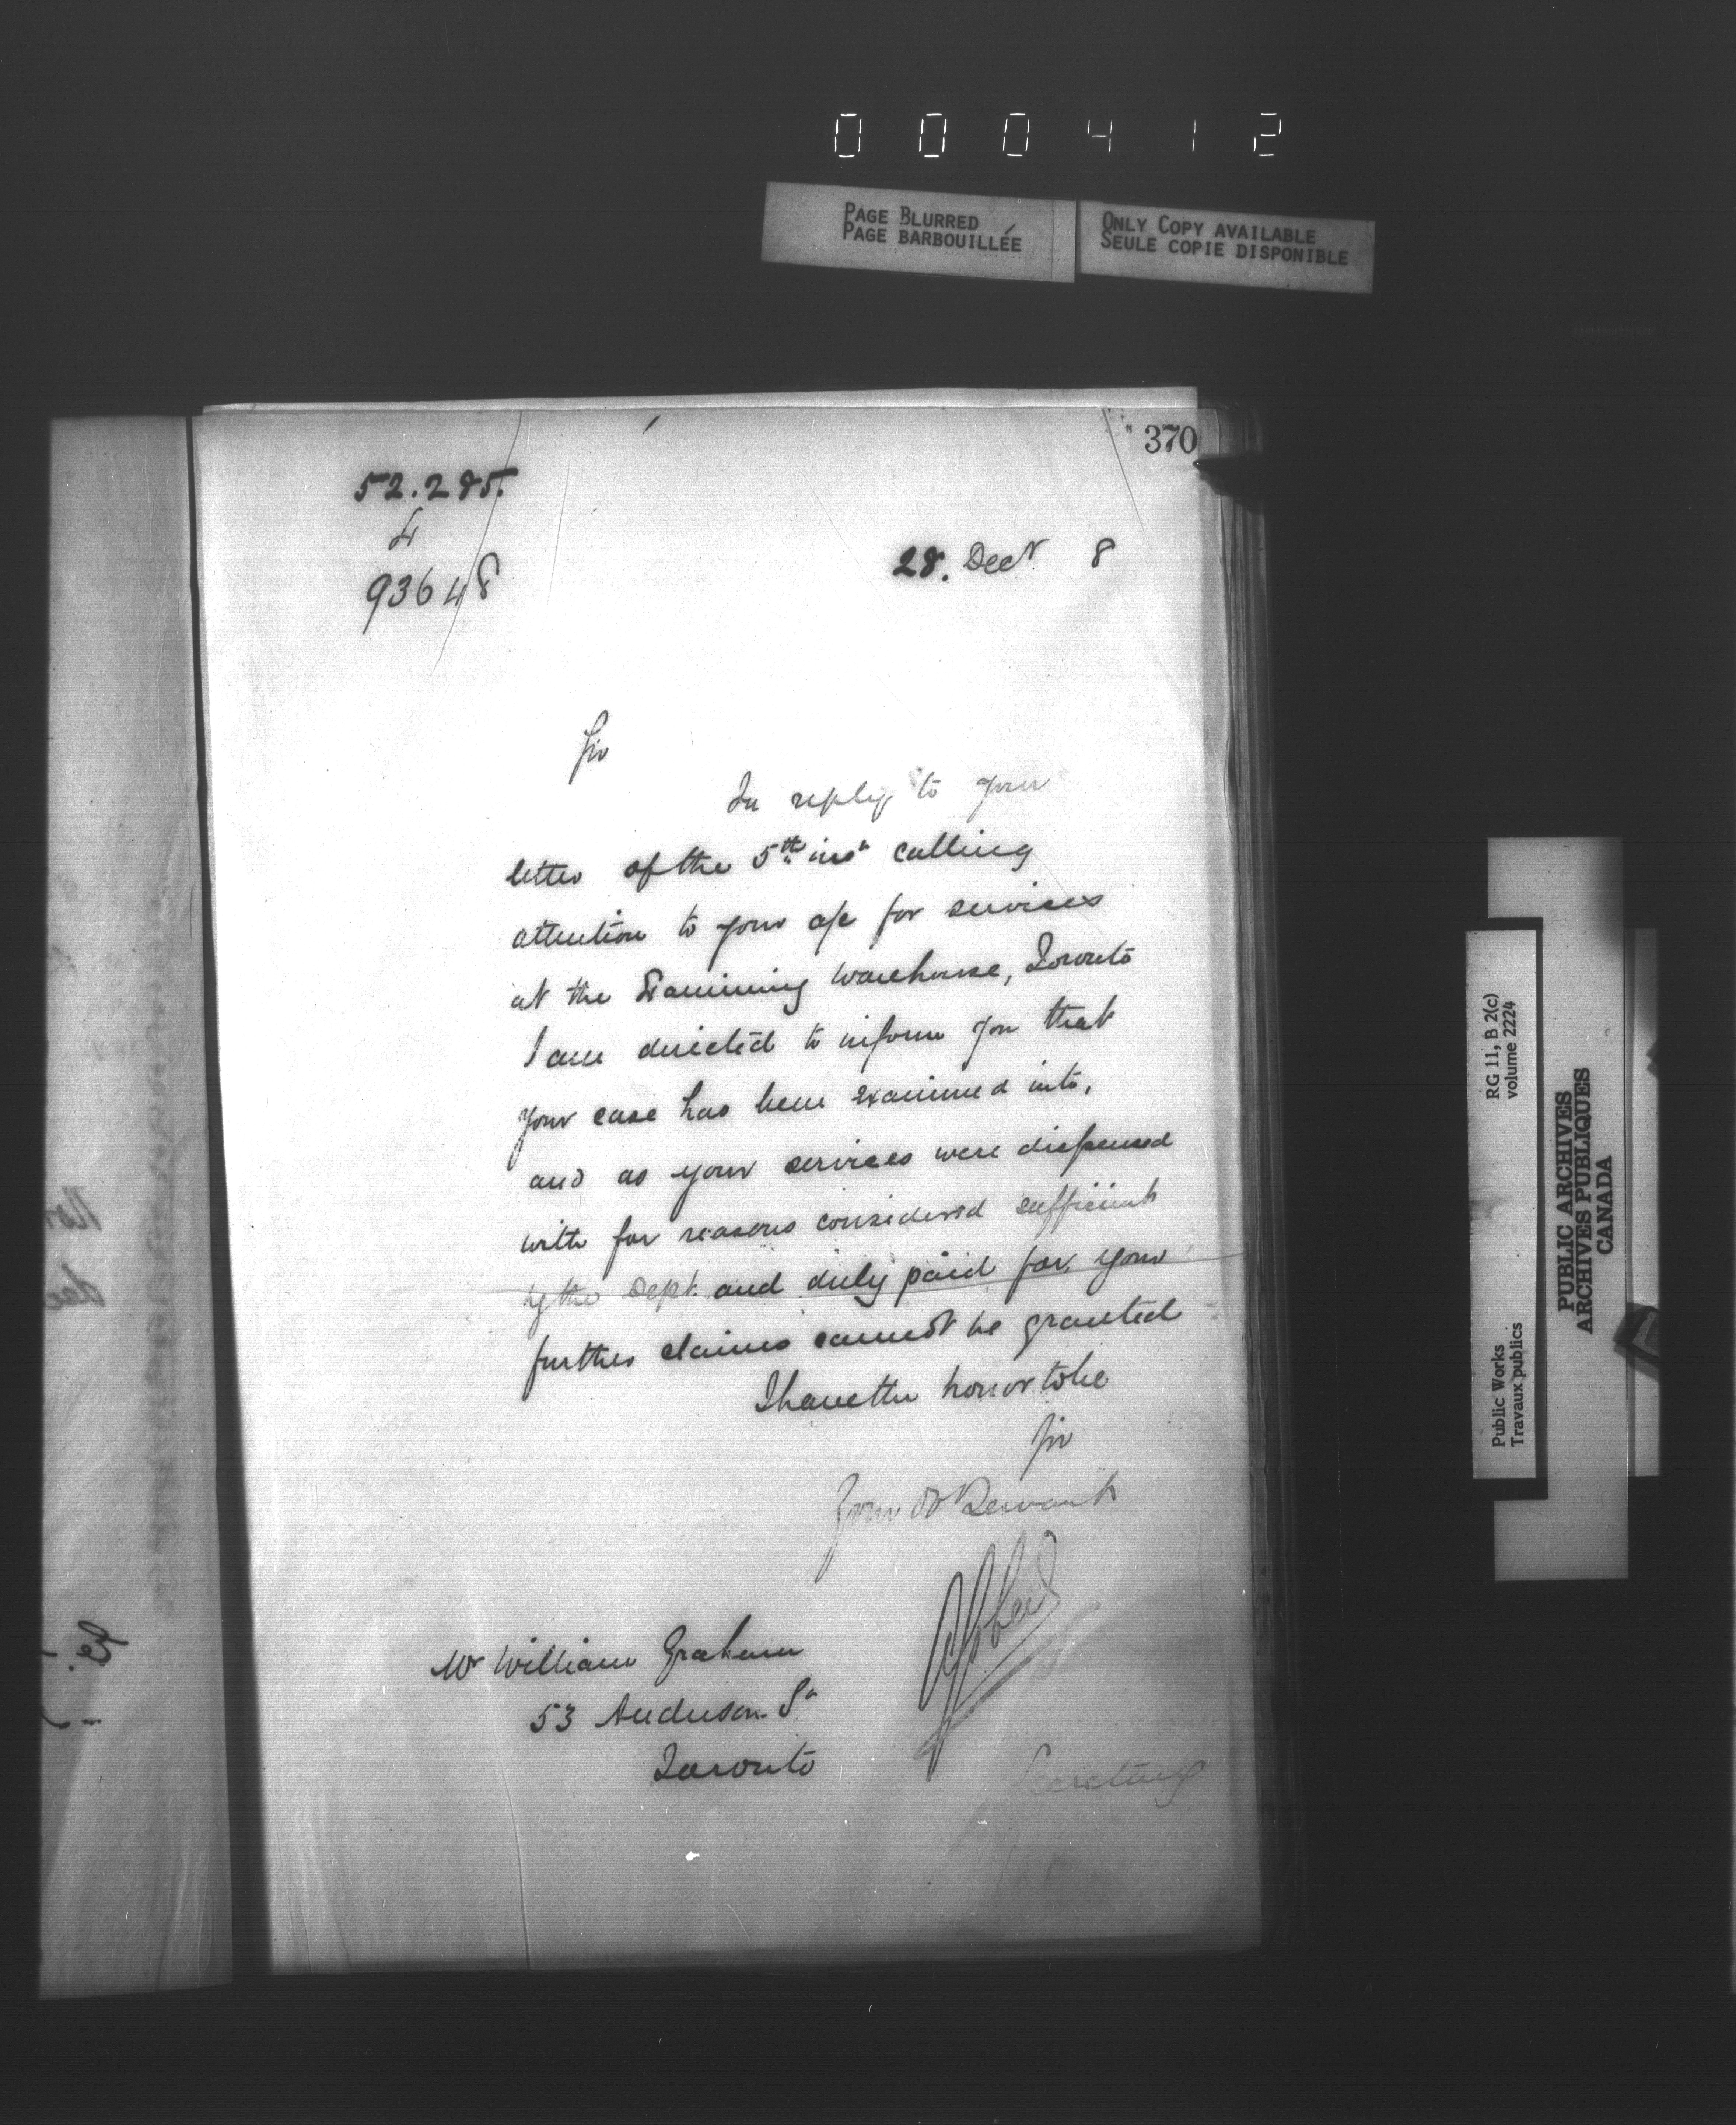 000412
PAGE BLURRED
PAGE BARBOUILLÉE
ONLY COPY AVAILABLE
SEULE COPIE DISPONIBLE
370
52.285.
4
93648
28. Decr 8
Sir
In reply to your
letter of the 5th inst calling
attention to your a/c for services
at the Examining Warehouse, Toronto
I am directed to inform you that
your case has been examined into,
and as your services were dispensed
with for reasons considered sufficient
by the Dept. and duly paid for, your
further claims cannot be granted
I have the honor to be
Sir
Your Ob Servant
Mr William Graham
53 Anderson St
Toronto
Secretary
RG 11, B 2(c)
volume 2224
Public Works
Travaux publics
PUBLIC ARCHIVES
ARCHIVES PUBLIQUES
CANADA